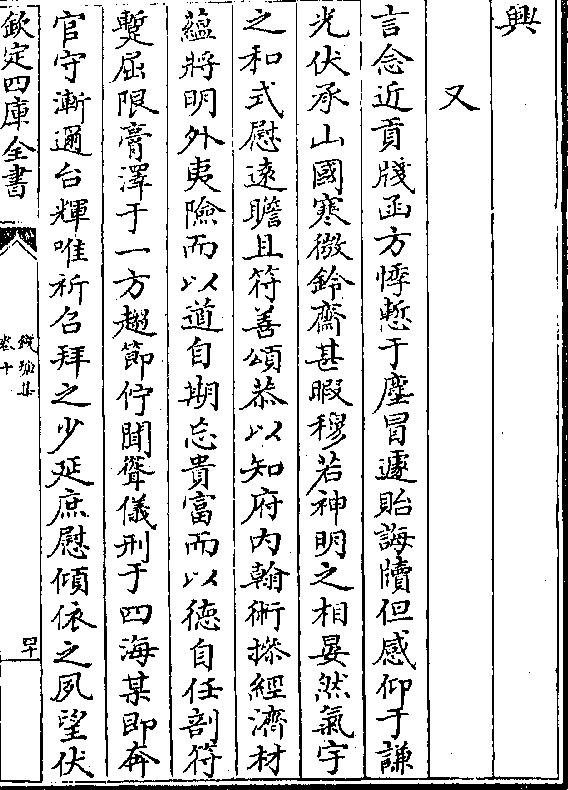 興
又
言念近貢牋函方悸慙于塵冒遽貽誨牘但感仰于謙
光伏承山國寒微鈴齋甚暇穆若神明之相晏然氣宇
之和式慰逺瞻且符善頌恭以知府内翰術摻經濟材
蘊將明外夷險而以道自期忘貴富而以徳自任剖符
蹔屈限膏澤于一方趨節佇聞聳儀刑于四海某即奔
官守漸邇台輝唯祈召拜之少延庶慰傾依之夙望伏
欽定四庫全書
卷十
四十